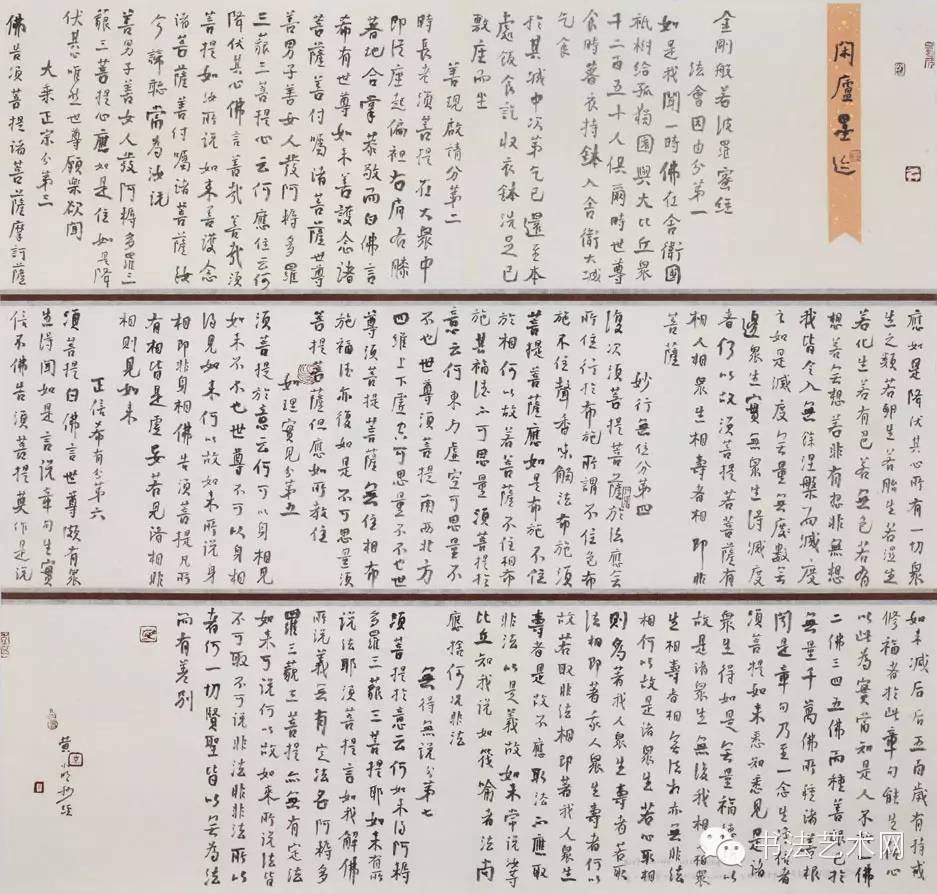 閑廬墨迹
金剛般若波羅蜜經
法會因由分第一
如是我聞一時佛在舍衛國
祇樹給孤獨園與大比丘衆
千二百五十人俱爾時世尊
食時著衣持鉢入舍衛大城
乞食
於其城中次第乞已還至本
處飯食訖收衣鉢洗足已
敷座而坐
善現啟請分第二
時長老須菩提在大衆中
即從座起偏袒右肩右膝
著地合掌恭敬而白佛言
希有世尊如来善護念諸
菩薩善付囑諸菩薩世尊
善男子善女人發阿耨多羅
三藐三菩提心云何應住云何
降伏其心佛言善哉善哉須
菩提如汝所説如来善護念
諸菩薩善付囑諸菩薩汝
今諦聽當為汝説
善男子善女人發阿耨多羅三
藐三菩提心應如是住如是降
伏其心唯然世尊願樂欲聞
大乘正宗分第三
佛告須菩提諸菩薩摩訶薩
應如是降伏其心所有一切衆
生之類若卵生若胎生若濕生
若化生若有色若無色若有
想若無想若非有想非無想
我皆令入無餘涅槃而滅度
之如是滅度無量無數無
邊衆生實無衆生得滅度
者何以故須菩提若菩薩有
相人相衆生相壽者相即非
菩薩
妙行無住分第四
復次須菩提菩薩於法應無
所住行於布施所謂不住色布
施不住聲香味觸法布施須
菩提菩薩應如是布施不住
於相何以故若菩薩不住相布
施其福德不可思量須菩提於
意云何東方虛空可思量不
不也世尊須菩提南西北方
四維上下虛空可思量不不也世
尊須菩提菩薩無住相布
施福德亦復如是不可思量須
菩提菩薩但應如所教住
如理實見分第五
須菩提於意云何可以身相見
如来不不也世尊不可以身相
得見如来何以故如来所説身
相即非身相佛告須菩提凡所
有相皆是虛妄若見諸相非
相則見如来
正信希有分第六
須菩提白佛言世尊頗有衆
生得聞如是言説章句生實
信不佛告須菩提莫作是説
如来滅后后五百歲有持戒
修福者於此章句能生信心
以此為實當知是人不於一佛
二佛三四五佛而種善根已於
無量千萬佛所種諸善根
聞是章句乃至一念生淨信者
須菩提如来悉知悉見是諸
衆生得如是無量福德何以
故是諸衆生無復我相人相衆
生相壽者相無法相亦無非法
相何以故是諸衆生若心取相
則為著我人衆生壽者若取
法相即著我人衆生壽者何以
故若取非法相即著我人衆生
壽者是故不應取法不應取
非法以是義故如来常説汝等
比丘知我説法如筏喻者法尚
應捨何況非法
無得無説分第七
須菩提於意云何如来得阿耨
多羅三藐三菩提耶如来有所
説法耶須菩提言如我解佛
所説義無有定法名阿耨多
羅三藐三菩提亦無有定法
如来可説何以故如来所説法皆
不可取不可説非法非非法所以
者何一切賢聖皆以無為法
而有差別
书法艺术网